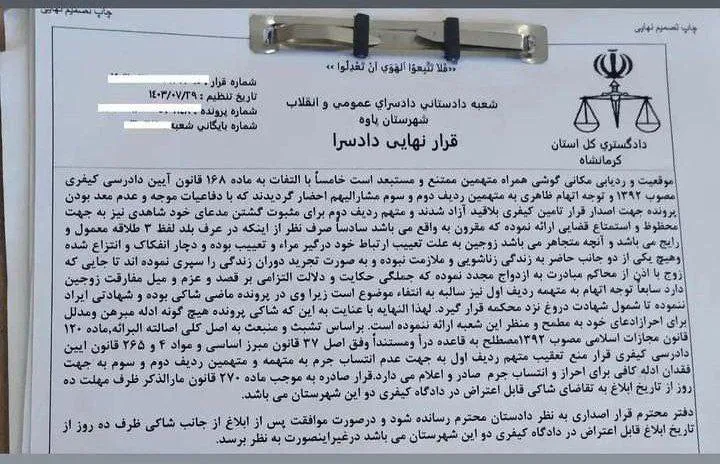 چاپ تصمیم نهایی
چاپ تصمیم نهایی
«فَلا تَتَّبِعوُا اَلهَوَي اَنْ تَعْدِلُوا»
شماره قرار :
تاریخ تنظیم : ۱۴۰۳/۰۷/۲۹
شماره پرونده :
شماره بایگانی شعبه :
شعبه دادستاني دادسراي عمومي و انقلاب
شهرستان پاوه
قرار نهایی دادسرا
دادگستري کل استان
کرمانشاه
موقعیت و ردیابی مکانی گوشی همراه متهمین ممتنع و مستبعد است خامساً با التفات به ماده ۱۶۸ قانون آیین دادرسی کیفری
مصوب ۱۳۹۲ و توجه اتهام ظاهری به متهمین ردیف دوم و سوم مشارالیهم احضار گردیدند که با دفاعیات موجه و عدم معد بودن
پرونده جهت اصدار قرار تامین کیفری بلاقید آزاد شدند و متهم ردیف دوم برای مثبوت گشتن مدعای خود شاهدی نیز به جهت
محظوظ و استمتاع قضایی ارائه نموده که مقرون به واقع می باشد سادساً صرف نظر از اینکه در عرف بلد لفظ ۳ طلاقه معمول و
رایج می باشد و آنچه متجاهر می باشد زوجین به علت تعییب ارتباط خود درگیر مراء و تعییب بوده و دچار انفکاک و انتزاع شده
وهیچ یکی از دو جانب حاضر به زندگی زناشویی و ملازمت نبوده و به صورت تجرید دوران زندگی را سپری نموده اند تا جایی که
زوج با اذن از محاکم مبادرت به ازدواج مجدد نموده که جملگی حکایت و دلالت التزامی بر قصد و عزم و میل مفارقت زوجین
دارد سابعاً توجه اتهام به متهمه ردیف اول نیز سالبه به انتفاء موضوع است زیرا وی در پرونده ماضی شاکی بوده و شهادتی ایراد
ننموده تا شمول شهادت دروغ نزد محکمه قرار گیرد. لهذا النهایه با عنایت به این که شاکی پرونده هیچ گونه ادله مبرهن ومدلل
برای احرازادعای خود به مطمح و منظر این شعبه ارائه ننموده است. براساس تشبث و منبعث به اصل کلی اصالته البرائه،ماده ۱۲۰
قانون مجازات اسلامی مصوب ۱۳۹۲مصطلح به قاعده درأ ومستنداً وفق اصل ۳۷ قانون مبرز اساسی و مواد ۴ و ۲۶۵ قانون ایین
دادرسی کیفری قرار منع تعقیب متهم ردیف اول به جهت عدم انتساب جرم به متهمه و متهمین ردیف دوم و سوم به جهت
فقدان ادله کافی برای احراز و انتساب جرم صادر و اعلام می دارد.قرار صادره به موجب ماده ۲۷۰ قانون مارالذکر ظرف مهلت ده
روز از تاریخ ابلاغ به تقاضای شاکی قابل اعتراض در دادگاه کیفری دو این شهرستان می باشد.
دفتر محترم قرار اصداری به نظر دادستان محترم رسانده شود و درصورت موافقت پس از ابلاغ از جانب شاکی ظرف ده روز از
تاریخ ابلاغ قابل اعتراض در دادگاه کیفری دو این شهرستان می باشد درغیراینصورت به نظر برسد.